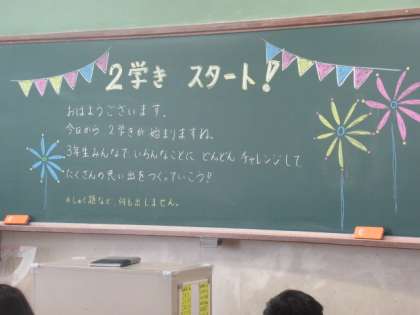 2学き スタート!
おはようございます。
今日から 2学きが 始まりますね。
3年生みんなで いろんなことに どんどん チャレンジして
たくさんの思い出をつくっていこう!!
※しゅく題など、何も出しません。